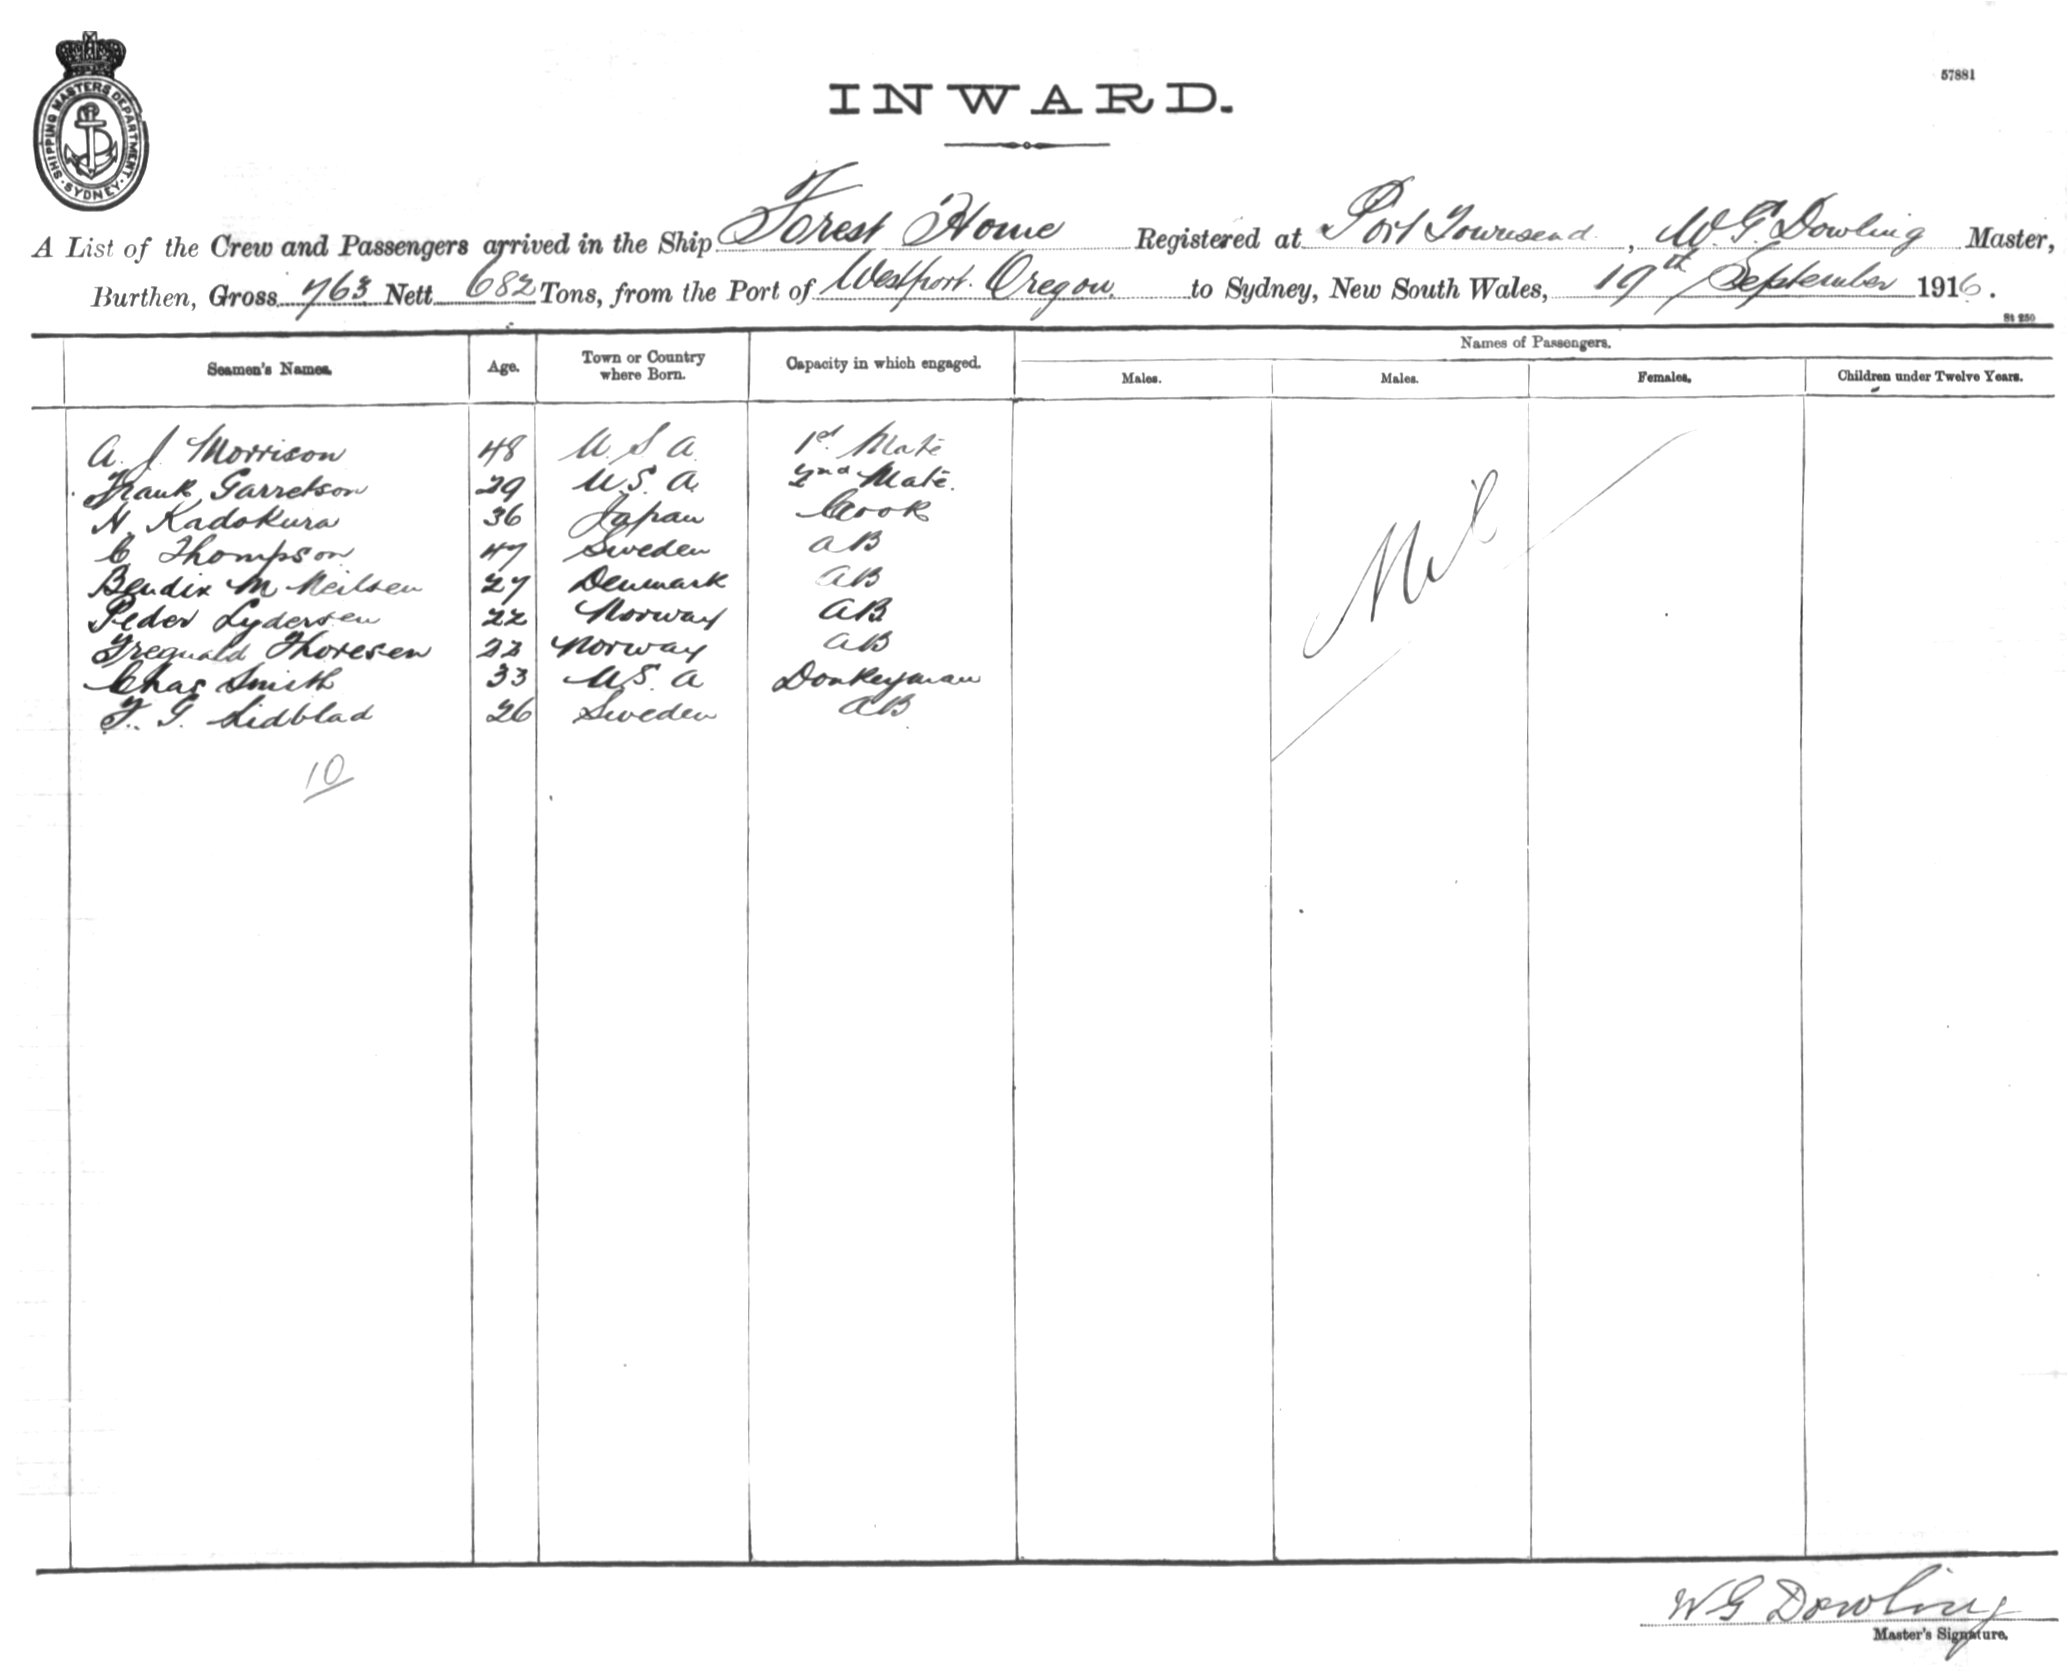 57881
SHIPPING MASTERS DEPARTMENT. SYDNEY.
INWARD.
A List of the Crew and Passengers arrived in the Ship Forest Home Registered at Port Townsend, W. G. Dowling Master,
Burthen, Gross 763 Nett 682 Tons, from the Port of Westport. Oregon. to Sydney, New South Wales, 19th September 1916.
St 250
Seamen's Names. Age. Town or Country where Born. Capacity in which engaged. Names of Passengers.
Males. Males. Females. Children under Twelve Years.
A. J. Morrison 48 U. S. A. 1st Mate
Frank Garretson 29 U. S. A. 2nd Mate.
N. Kadokura 36 Japan Cook
C Thompson 47 Sweden AB
Bendix M Neilsen 27 Denmark AB
Peder Lydersen 22 Norway AB
Thoresen 22 Norway AB
Chas Smith 33 U. S. A Donkeyman
F. G. Lidblad 26 Sweden AB
Nil
10
W G Dowling
Master's Signature.